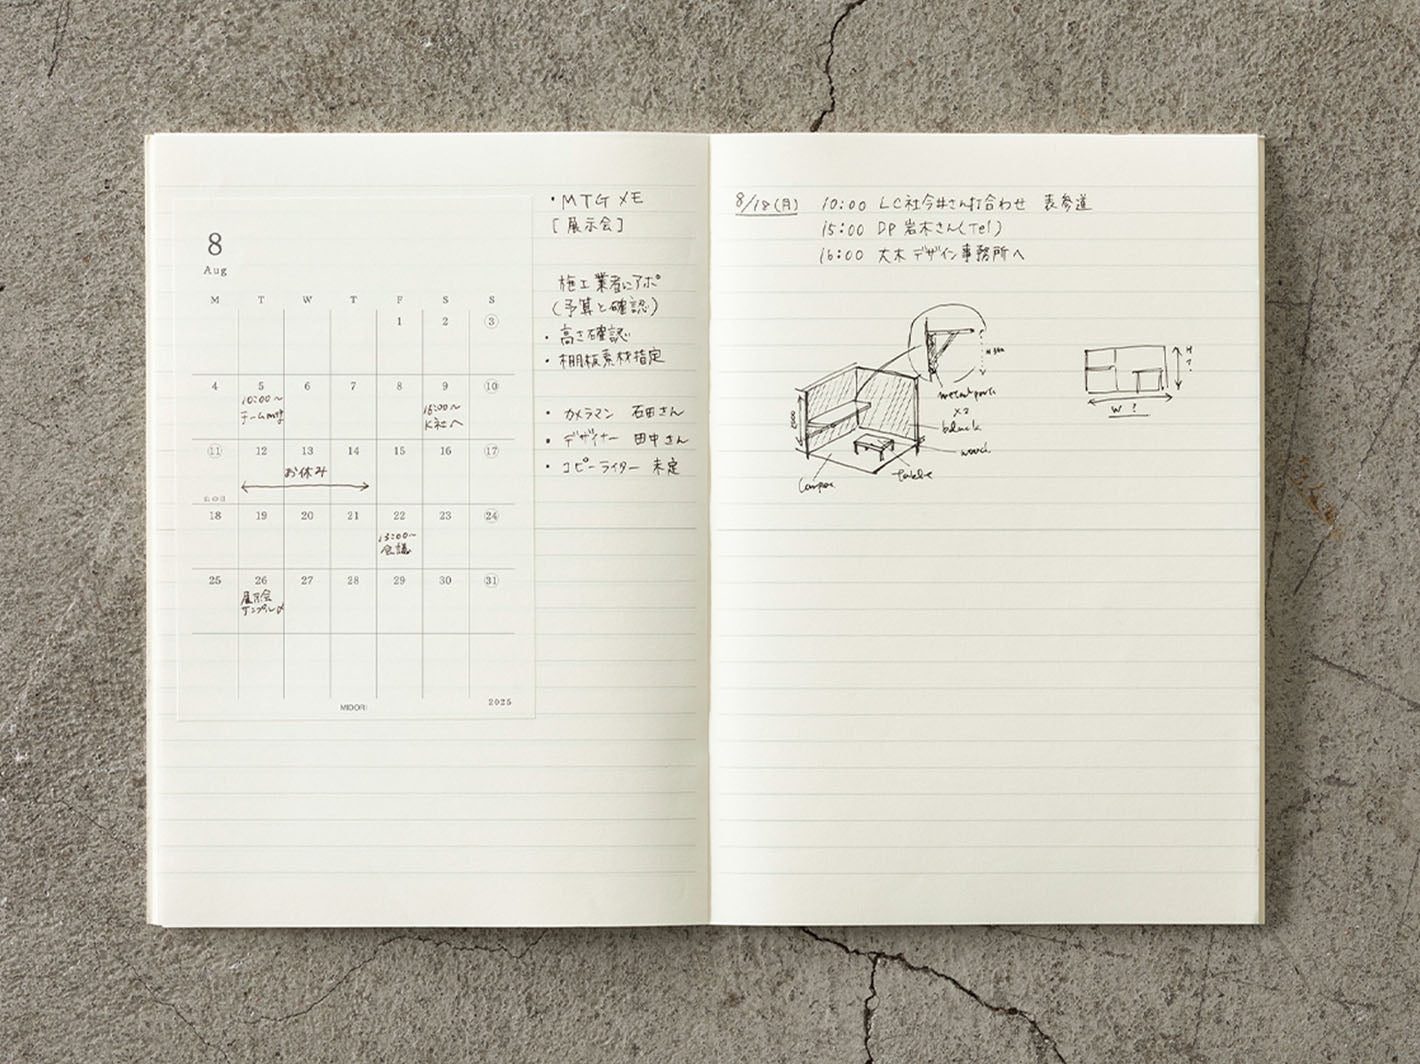 8
Aug
M T W T F S S
1 2 3
4 5 6 7 8 9 10
10:00~
チームmtg
16:00~
K社へ
11 12 13 14 15 16 17
お休み
山の日
18 19 20 21 22 23 24
13:00~
会議
25 26 27 28 29 30 31
展示会
サンプル〆
MIDORI
2025
・MTGメモ
[展示会]
施工業者にアポ
(予算と確認)
・高さ確認
・棚板素材指定
・カメラマン 石田さん
・デザイナー 田中さん
・コピーライター 未定
8/18(月) 10:00 LC社今井さん打合わせ 表参道
15:00 DP 岩木さん(Tel)
16:00 大木デザイン事務所へ
metal parts
x2
black
wood
table
H
?
W ?